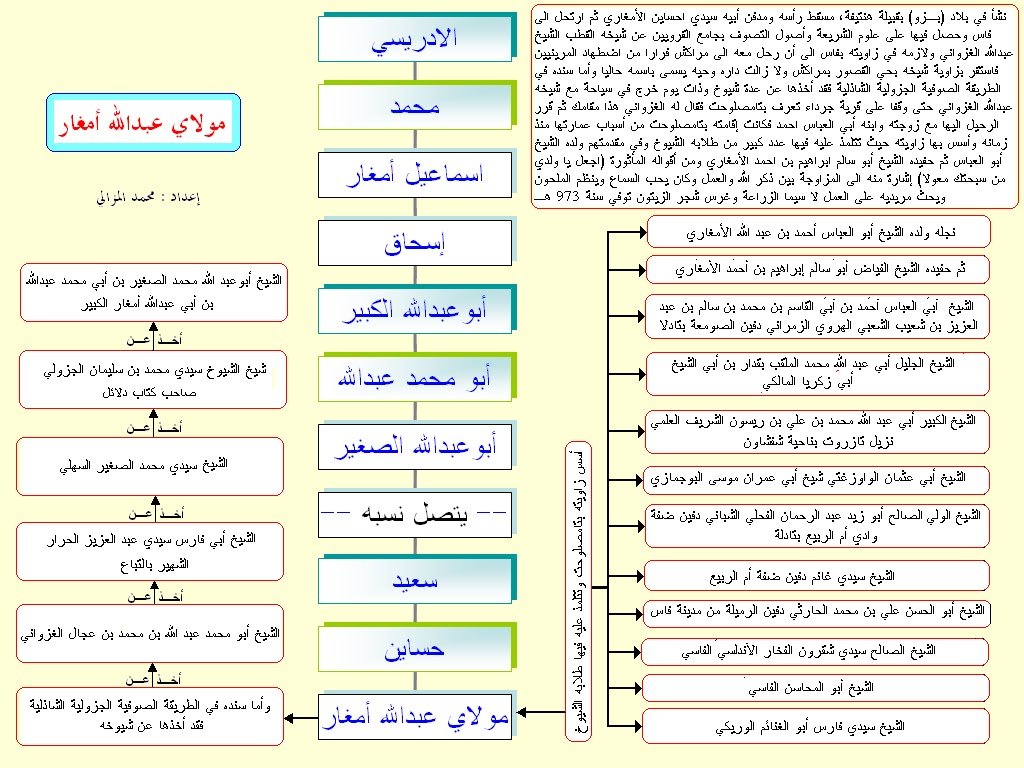 نشأ في بلاد (بـــزو) بقبيلة هنتيفة، مسقط رأسه ومدفن أبيه سيدي احساين الأمغاري ثم ارتحل الى
فاس وحصل فيها على علوم الشريعة وأصول التصوف بجامع القرويين عن شيخه القطب الشيخ
عبدالله الغزواني ولازمه في زاويته بفاس الى أن رحل معه الى مراكش فرارا من اضطهاد المرينيين
فاستقر بزاوية شيخه بحي القصور بمراكش ولا زالت داره وحيه يسمى باسمه حاليا وأما سنده في
الطريقة الصوفية الجزولية الشاذلية فقد أخذها عن عدة شيوخ وذات يوم خرج في سياحة مع شيخه
عبدالله الغزواني حتى وقفا على قرية جرداء تعرف بتامصلوحت فقال له الغزواني هذا مقامك ثم قرر
الرحيل اليها مع زوجته وابنه أبي العباس احمد فكانت إقامته بتامصلوحت من أسباب عمارتها منذ
زمانه وأسس بها زاويته حيث تتلمذ عليه فيها عدد كبير من طلابه الشيوخ وفي مقدمتهم ولده الشيخ
أبو العباس ثم حفيده الشيخ أبو سالم ابراهيم بن احمد الأمغاري ومن أقواله المأثورة (اجعل يا ولدي
من سبحتك معولا) إشارة منه الى المزاوجة بين ذكر الله والعمل وكان يحب السماع وينظم الملحون
ويحث مريديه على العمل لا سيما الزراعة وغرس شجر الزيتون توفي سنة 973 هـــ
الادريسي
محمد
اسماعيل أمغار
إسحاق
أبو عبدالله الكبير
أبو محمد عبدالله
أبو عبدالله الصغير
-- يتصل نسبه --
سعيد
حساين
مولاي عبدالله أمغار
مولاي عبدالله أمغار
إعداد : محمد الموالي
نجله ولده الشيخ أبو العباس أحمد بن عبد الله الأمغاري
ثم حفيده الشيخ الفياض أبو سالم إبراهيم بن أحمد الأمغاري
الشيخ أبي العباس أحمد بن أبي القاسم بن محمد بن سالم بن عبد
العزيز بن شعيب الشعبي الهروي الزمراني دفين الصومعة بتادلا
الشيخ الجليل أبي عبد الله محمد الملقب بقدار بن أبي الشيخ
أبي زكريا المالكي
الشيخ الكبير أبي عبد الله محمد بن علي بن ريسون الشريف العلمي
نزيل تازروت بناحية شفشاون
الشيخ أبي عثمان الواوزغتي شيخ أبي عمران موسى البوجمازي
الشيخ الولي الصالح أبو زيد عبد الرحمان الفحلي الشباني دفين ضفة
وادي أم الربيع بتادلة
الشيخ سيدي غانم دفين ضفة أم الربيع
الشيخ أبو الحسن علي بن محمد الحارثي دفين الرميلة من مدينة فاس
الشيخ الصالح سيدي شقرون الفخار الأندلسي الفاسي
الشيخ أبو المحاسن الفاسي
الشيخ سيدي فارس أبو الغنائم الوريكي
أسس زاويته بتامصلوحت وتتلمذ عليه فيها طلابه الشيوخ
الشيخ أبو عبد الله محمد الصغير بن أبي محمد عبدالله
بن أبي عبدالله أمغار الكبير
أخــذ عـــن
شيخ الشيوخ سيدي محمد بن سليمان الجزولي
صاحب كتاب دلائل
أخــذ عـــن
الشيخ سيدي محمد الصغير السهلي
أخــذ عـــن
الشيخ أبي فارس سيدي عبد العزيز الحرار
الشهير بالتباع
أخــذ عـــن
الشيخ أبو محمد عبد الله بن محمد بن عجال الغزواني
أخــذ عـــن
وأما سنده في الطريقة الصوفية الجزولية الشاذلية
فقد أخذها عن شيوخه